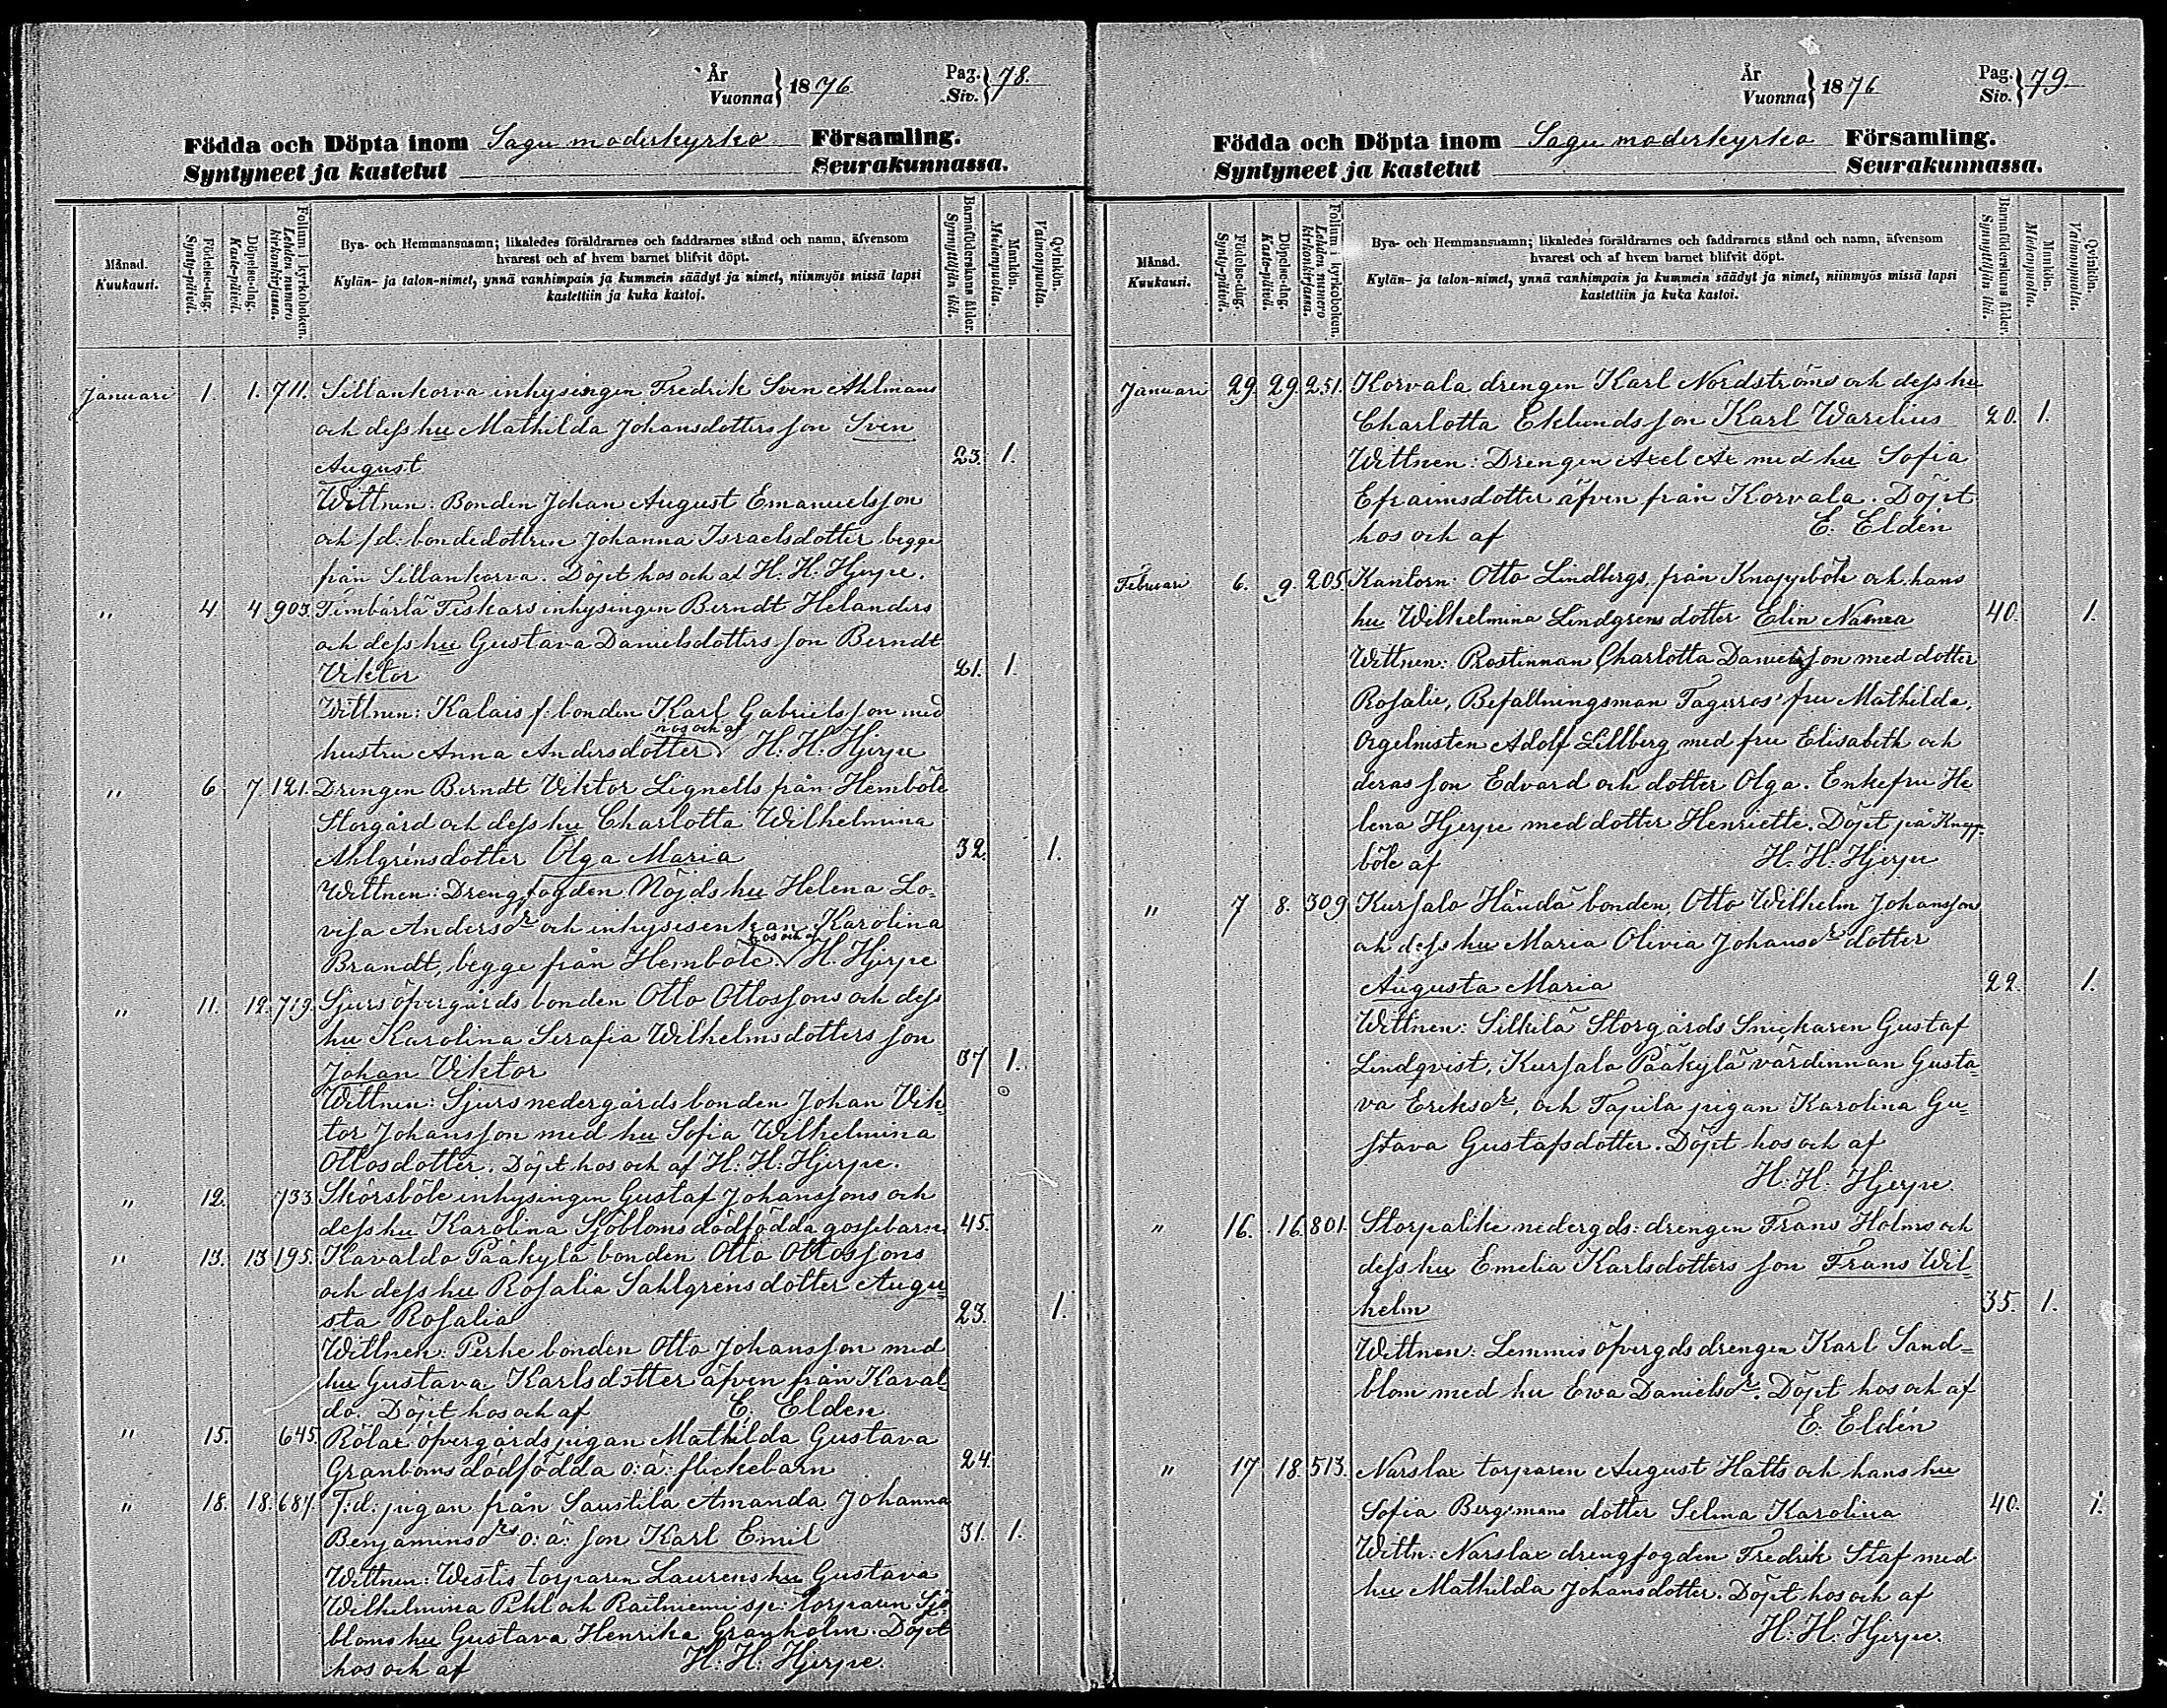 År
Vuonna } 1876
Pag.
Siv. } 78.
Födda och Döpta inom Sagu moderkyrko Församling.
Syntyneet ja kastetut Seurakunnassa.
Månad.
Kuukausi.
Födelse-dag.
Synty-päivä.
Döpelse-dag.
Kaste-päivä.
Folium i kyrkoboken.
Lehden numero kirkonkirjassa.
Bya- och Hemmansnamn; likaledes föräldrarnes och faddrarnes stånd och namn, äfvensom
hvarest och af hvem barnet blifvit döpt.
Kylän- ja talon-nimet, ynnä vanhimpain ja kummein säädyt ja nimet, niinmyös missä lapsi
kastettiin ja kuka kastoi.
Barnföderskans ålder.
Synnyttäjän ikä.
Mankön.
Miehenpuolta.
Qvinkön.
Vaimonpuolta.
Januari 1. 1. 711. Sillankorva inhysingen Fredrik Sven Ahlmans
och dess hu Mathilda Johansdotters son Sven
August 23. 1.
Wittnen: Bonden Johan August Emanuelsson
och f d: bondedottren Johanna Israelsdotter begge
från Sillankorva. Döpt hos och af H. H. Hjerpe.
" 4 4 903. Timbärlä Fiskars inhysingen Berndt Helanders
och dess hu Gustava Danielsdotters son Berndt
Viktor 21. 1.
Wittnen: Kalais f. bonden Karl Gabrielsson med
hustru Anna Andersdotter hos och af H. H. Hjerpe
" 6 7. 121. Drengen Berndt Viktor Lignells från Hemböle
Storgård och dess hu Charlotta Wilhelmina
Ahlgrénsdotter Olga Maria 32. 1.
Wittnen: Drengfogden Nöjds hu Helena Lo-
visa Andersdr och inhysisenkan Karolina
Brandt, begge från Hemböle. hos och af H. Hjerpe
" 11. 12. 719. Sjurs öfvergårds bonden Otto Ottossons och dess
hu Karolina Serafia Wilhelmsdotters son
Johan Viktor 37 1.
Wittnen: Sjurs nedergårds bonden Johan Vik-
tor Johansson med hu Sofia Wilhelmina
Ottosdotter. Döpt hos och af H. H. Hjerpe.
" 12. 733. Skörsböle inhysingen Gustaf Johanssons och
dess hu Karolina Sjöbloms dödfödda gossebarn 45.
" 13. 13 195. Kavaldo Pääkylä bonden Otto Ottossons
och dess hu Rosalia Sahlgrens dotter Augu-
sta Rosalia 23. 1.
Wittnen: Perhe bonden Otto Johansson med
hu Gustava Karlsdotter äfven från Kaval-
do. Döpt hos och af E. Eldén
" 15. 645. Rölax öfvergårds pigan Mathilda Gustava
Granboms dödfödda o: ä: flickebarn 24.
" 18. 18. 684. F: d: pigan från Saustila Amanda Johanna
Benjaminsdrs o: ä: son Karl Emil 31. 1.
Wittnen: Westis torparen Laurens hu Gustava
Wilhelmina Pihl och Raitniemi sp: torparen Sjö-
bloms hu Gustava Henrika Granholm. Döpt
hos och af H. H. Hjerpe.
År
Vuonna } 1876
Pag.
Siv. } 79.
Födda och Döpta inom Sagu moderkyrko Församling.
Syntyneet ja kastetut Seurakunnassa.
Månad.
Kuukausi.
Födelse-dag.
Synty-päivä.
Döpelse-dag.
Kaste-päivä.
Folium i kyrkoboken.
Lehden numero kirkonkirjassa.
Bya- och Hemmansnamn; likaledes föräldrarnes och faddrarnes stånd och namn, äfvensom
hvarest och af hvem barnet blifvit döpt.
Kylän- ja talon-nimet, ynnä vanhimpain ja kummein säädyt ja nimet, niinmyös missä lapsi
kastettiin ja kuka kastoi.
Barnföderskans ålder.
Synnyttäjän ikä.
Mankön.
Miehenpuolta.
Qvinkön.
Vaimonpuolta.
Januari 29. 29. 251. Korvala drengen Karl Nordströms och dess hu
Charlotta Eklunds son Karl Warelius 20. 1.
Wittnen: Drengen Axel Ax med hu Sofia
Efraimsdotter äfven från Korvala. Döpt
hos och af E. Eldén
Februari 6. 9. 205. Kantorn: Otto Lindbergs, från Knapeböle och hans
hu Wilhelmina Lindgrens dotter Elin Naema 40. 1.
Wittnen: Prostinnan Charlotta Danielsson med dotter
Rosalie, Befallningsman Tagerros' fru Mathilda,
Orgelnisten Adolf Lillberg med fru Elisabeth och
deras son Edvard och dotter Olga. Enkefru He-
lena Hjerpe med dotter Henriette. Döpt på Knap-
böle af H. H. Hjerpe
" 7 8. 309 Kursalo Händä bonden, Otto Wilhelm Johansson
och dess hu Maria Olivia Johansdr dotter
Augusta Maria 22. 1.
Wittnen: Silkilä Storgårds Snickaren Gustaf
Lindqvist, Kursalo Pääkylä värdinnan Gusta-
va Eriksdr, och Tapila pigan Karolina Gu-
stava Gustafsdotter. Döpt hos och af
H. H. Hjerpe.
" 16. 16. 801. Storpalike nedergds: drengen Frans Holms och
dess hu Emelia Karlsdotters son Frans Wil-
helm 35. 1.
Wittnen: Lemmis öfvergds drengen Karl Sand-
blom med hu Ewa Danielsdr. Döpt hos och af
E. Eldén
" 17 18. 513. Narslax torparen August Hatts och hans hu
Sofia Bergmans dotter Selma Karolina 40. 1.
Wittn: Narslax drengfogden Fredrik Staf med
hu Mathilda Johansdotter. Döpt hos och af
H. H. Hjerpe.